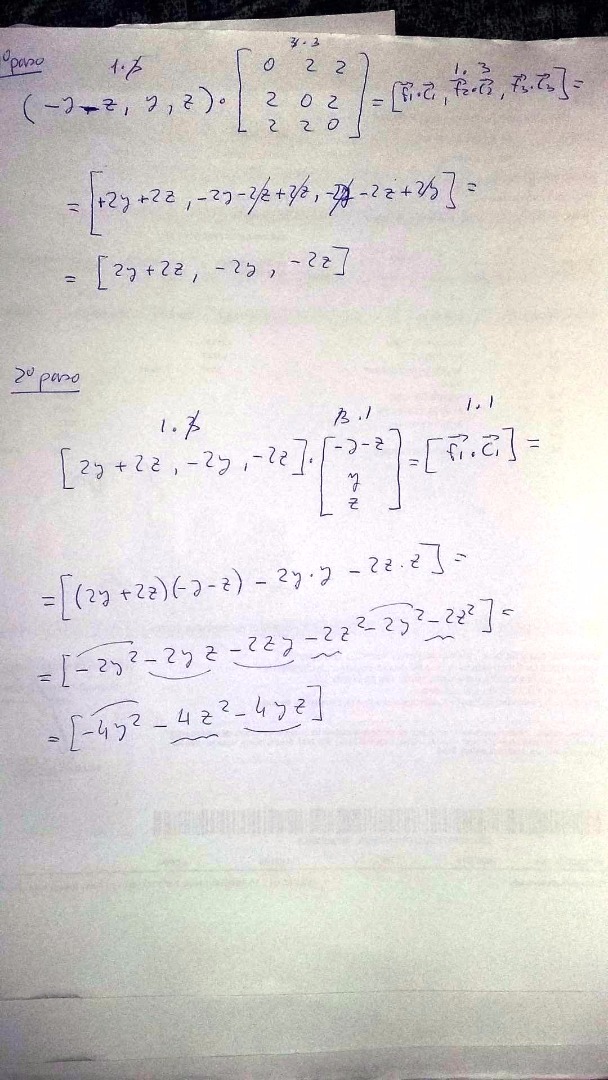 1º paso
1.3 3.3
(-y-z, y, z) · [0 2 2; 2 0 2; 2 2 0] = [f⃗₁·c⃗₁, f⃗₂·c⃗₂, f⃗₃·c⃗₃] =
1.3
= [+2y+2z, -2y-2z+2z, -2y-2z+2y] =
= [2y+2z, -2y, -2z]
2º paso
1.3 3.1 1.1
[2y+2z, -2y, -2z] · [-y-z; y; z] = [f⃗₁·c⃗₁] =
= [(2y+2z)(-y-z) - 2y·y - 2z·z] =
= [-2y² - 2yz - 2zy - 2z² - 2y² - 2z²] =
= [-4y² - 4z² - 4yz]